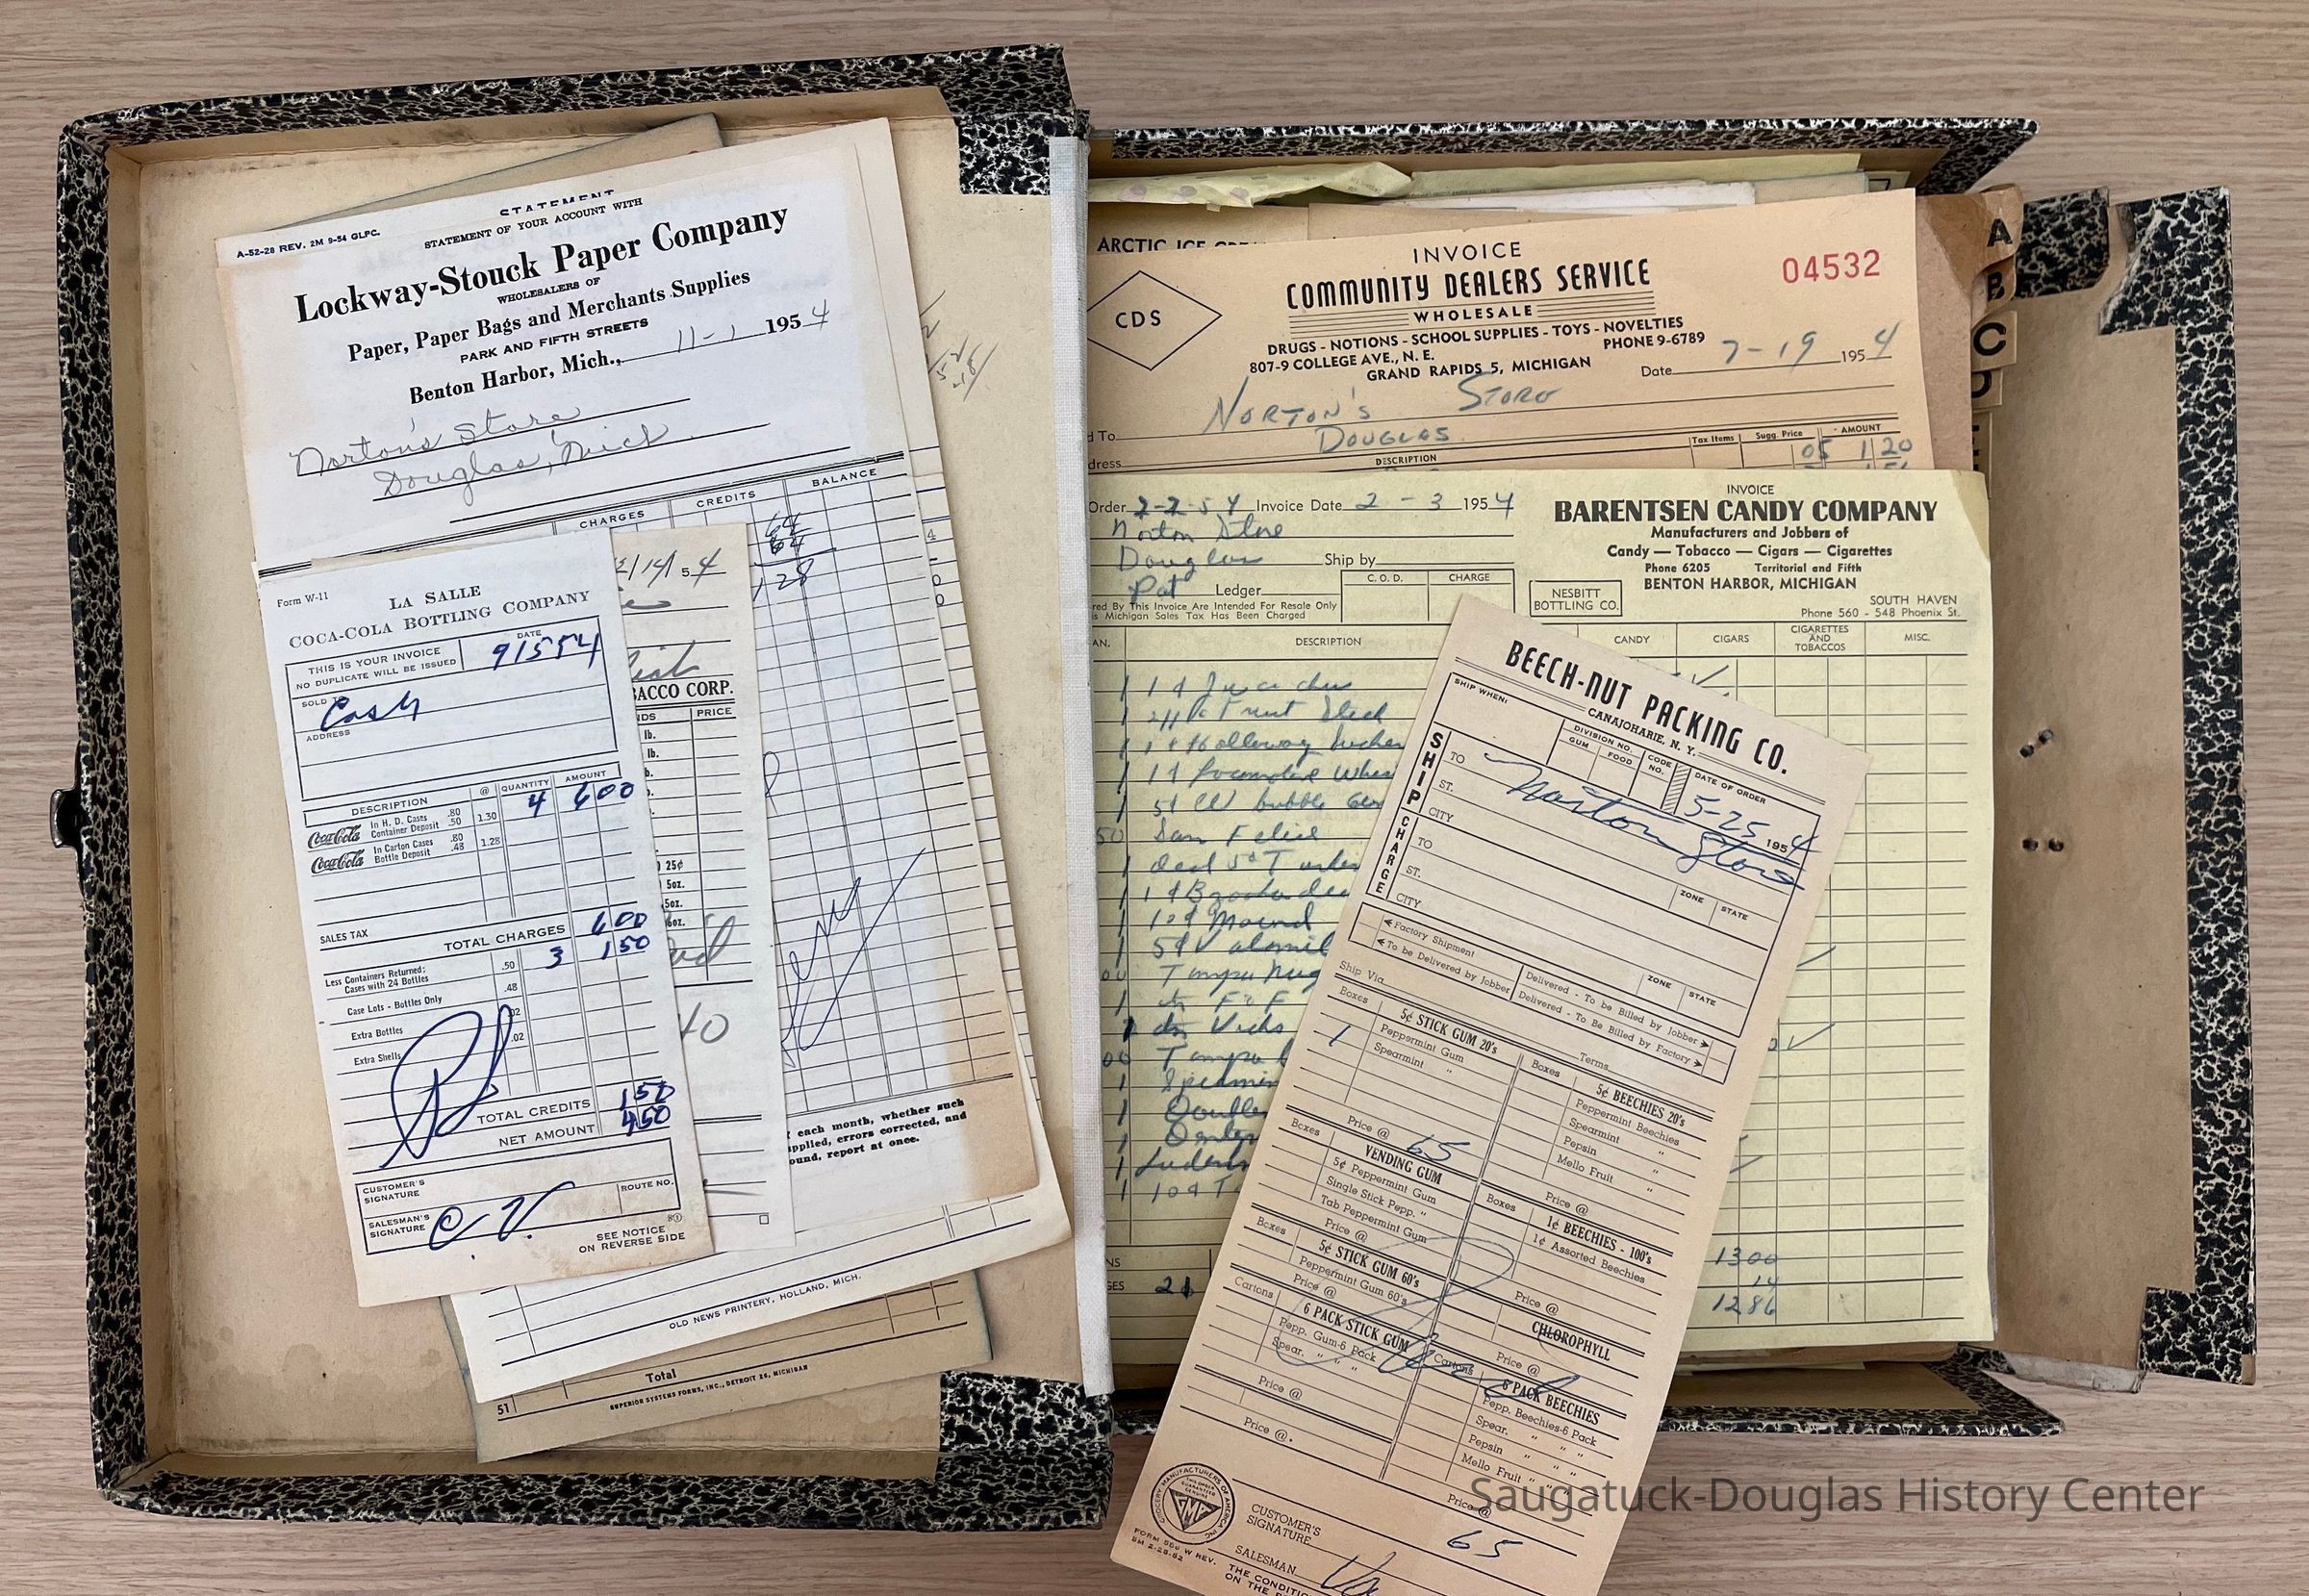 STATEMENT
A-52-28 REV. 2M 9-54 GLPC.
STATEMENT OF YOUR ACCOUNT WITH
Lockway-Stouck Paper Company
WHOLESALERS OF
Paper, Paper Bags and Merchants Supplies
PARK AND FIFTH STREETS
Benton Harbor, Mich., 11-1 1954
Norton's Store
Douglas, Mich
CHARGES CREDITS BALANCE
64
64
128
each month, whether such
pplied, errors corrected, and
ound, report at once.
OLD NEWS PRINTERY, HOLLAND, MICH.
Total
51 SUPERIOR SYSTEMS FORMS, INC., DETROIT 26, MICHIGAN
/14/54
ACCO CORP.
NDS PRICE
lb.
lb.
b.
25¢
5oz.
5oz.
6oz.
40
Form W-11
LA SALLE
COCA-COLA BOTTLING COMPANY
THIS IS YOUR INVOICE
NO DUPLICATE WILL BE ISSUED
DATE
91554
SOLD TO
Cash
ADDRESS
DESCRIPTION @ QUANTITY AMOUNT
Coca-Cola In H. D. Cases .80
Container Deposit .50 1.30 4 600
Coca-Cola In Carton Cases .80
Bottle Deposit .48 1.28
SALES TAX
TOTAL CHARGES 600
Less Containers Returned:
Cases with 24 Bottles .50 3 150
Case Lots - Bottles Only .48
Extra Bottles .02
Extra Shells .02
TOTAL CREDITS 150
NET AMOUNT 450
CUSTOMER'S
SIGNATURE
ROUTE NO.
SALESMAN'S
SIGNATURE C.V.
SEE NOTICE
ON REVERSE SIDE
ARCTIC ICE CRE
INVOICE
04532
CDS
COMMUNITY DEALERS SERVICE
WHOLESALE
DRUGS - NOTIONS - SCHOOL SUPPLIES - TOYS - NOVELTIES
807-9 COLLEGE AVE., N. E. PHONE 9-6789
GRAND RAPIDS 5, MICHIGAN
Date 7-19 1954
d To NORTON'S STORE
dress DOUGLAS
DESCRIPTION Tax Items Sugg. Price AMOUNT
05 1 20
A
B
C
D
Order 2-2-54 Invoice Date 2-3 1954
Norton Store
Douglas Ship by
Pat Ledger
C. O. D. CHARGE
red By This Invoice Are Intended For Resale Only
is Michigan Sales Tax Has Been Charged
INVOICE
BARENTSEN CANDY COMPANY
Manufacturers and Jobbers of
Candy — Tobacco — Cigars — Cigarettes
Phone 6205 Territorial and Fifth
BENTON HARBOR, MICHIGAN
NESBITT
BOTTLING CO.
SOUTH HAVEN
Phone 560 - 548 Phoenix St.
AN. DESCRIPTION CANDY CIGARS CIGARETTES
AND
TOBACCOS MISC.
1 1¢
1
1 1¢ Holloway
1 1¢
1 5¢ bubble Gum
50 San Felice
1
1 1¢ Bazooka
1 10¢ Mound
1 5¢
Tampa Nug
1
1 dz Vicks
00 Tampa
1 Spearmin
1 Double
1 Dentyn
1 Ludens
1 10¢ T
NS
GES
1300
14
1286
BEECH-NUT PACKING CO.
CANAJOHARIE, N. Y.
SHIP WHEN:
DIVISION NO.
GUM FOOD
CODE
NO.
DATE OF ORDER
5-25 1954
SHIP
TO Norton Store
ST.
CITY
CHARGE
TO
ST.
CITY
ZONE STATE
Factory Shipment
To be Delivered by Jobber
Delivered - To be Billed by Jobber
Delivered - To Be Billed by Factory
ZONE STATE
Ship Via
Terms
Boxes 5¢ STICK GUM 20's
1 Peppermint Gum
Spearmint "
Price @ 65
Boxes 5¢ BEECHIES 20's
Peppermint Beechies
Spearmint "
Pepsin "
Mello Fruit "
Price @
Boxes VENDING GUM
5¢ Peppermint Gum
Single Stick Pepp. "
Tab Peppermint Gum
Price @
Boxes 1¢ BEECHIES - 100's
1¢ Assorted Beechies
Price @
Boxes 5¢ STICK GUM 60's
Peppermint Gum 60's
Price @
CHLOROPHYLL
Price @
Cartons 6 PACK STICK GUM
Pepp. Gum-6 Pack
Spear. " " "
Price @
Price @
Cartons 6 PACK BEECHIES
Pepp. Beechies-6 Pack
Spear. " " "
Pepsin " " "
Mello Fruit " "
Price @
65
GROCERY MANUFACTURERS OF AMERICA INC
GMA
CUSTOMER'S
SIGNATURE
SALESMAN
THE CONDITIO
ON THE
Saugatuck-Douglas History Center